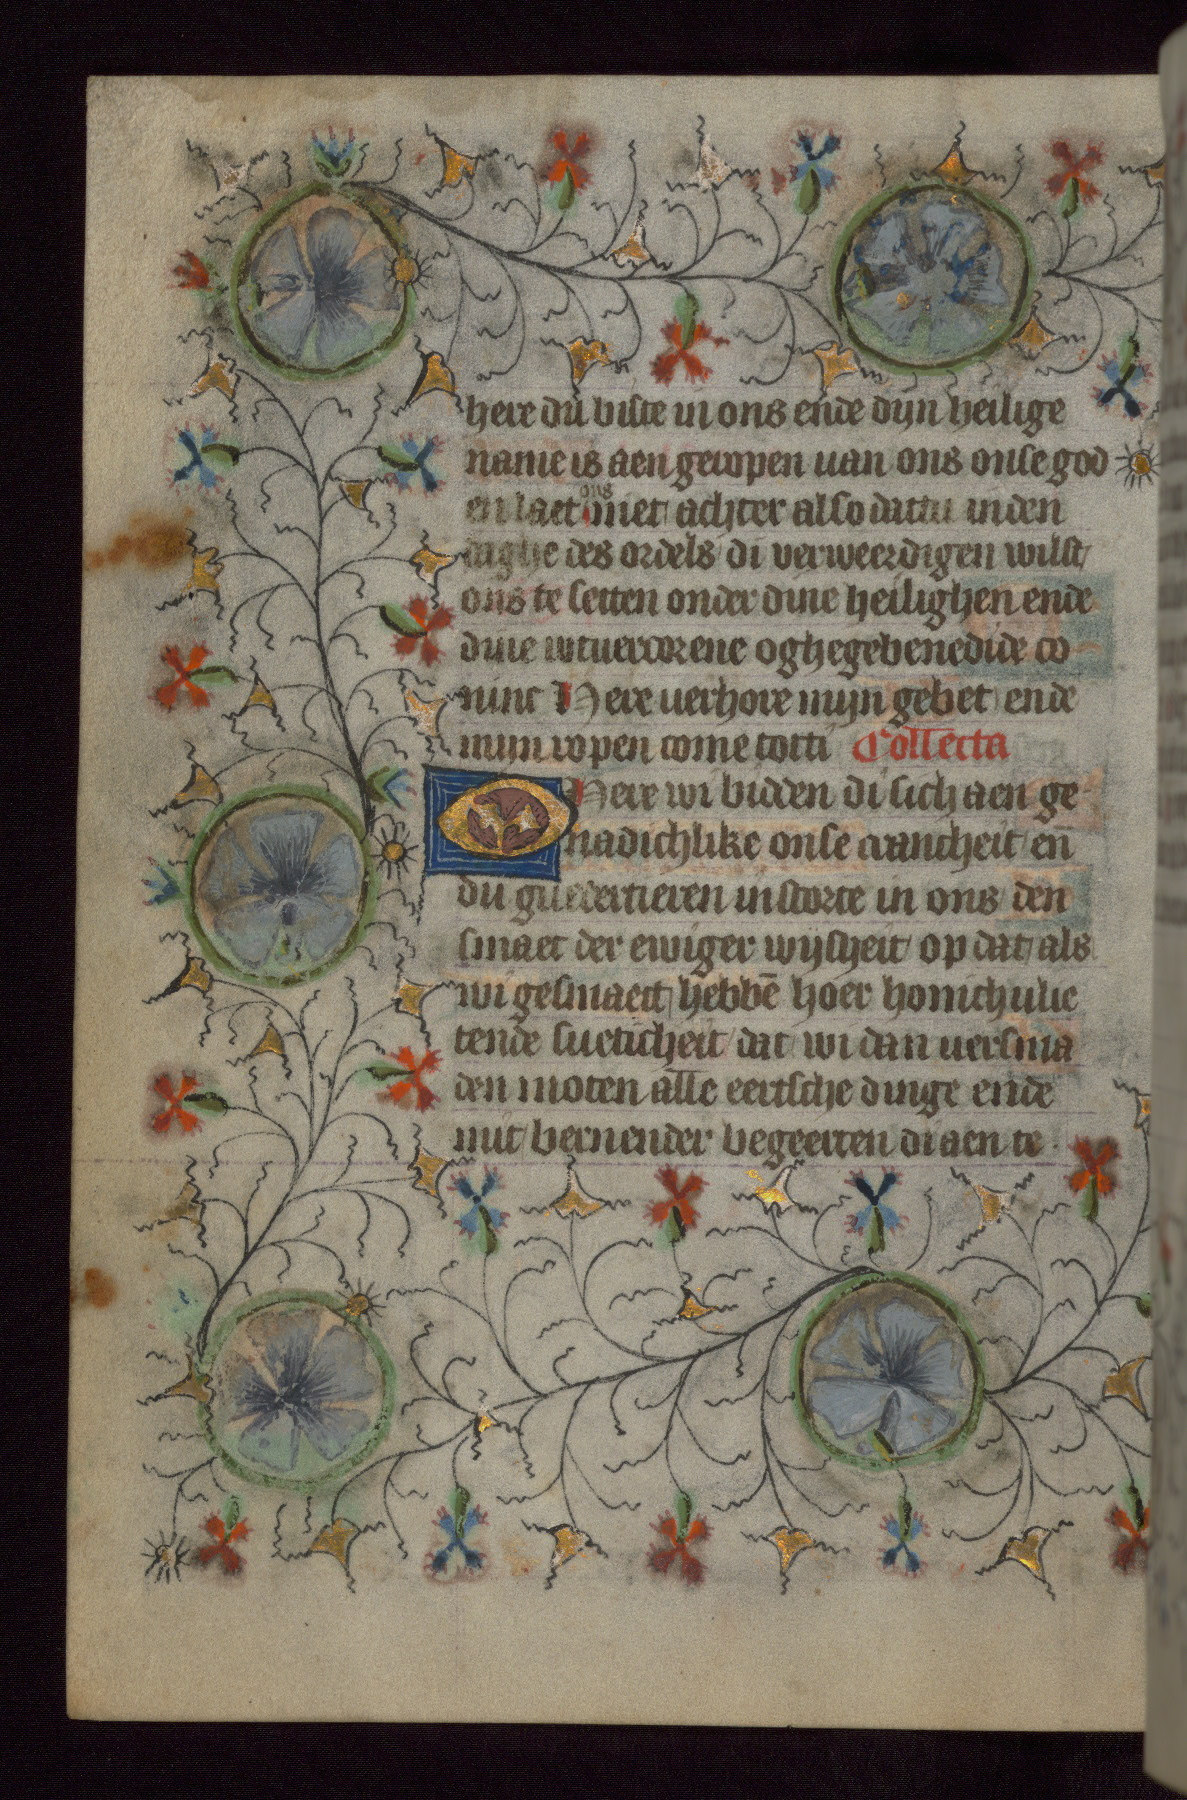 here du biste in ons ende dijn heilige
name is aen geropen van ons onse god
en laet ons niet achter also dattu in den
daghe des ordels di verweerdigen wilst
ons te setten onder dine heilighen ende
dine wtuercorene o ghegebenedide co
ninc Here verhore mijn gebet ende
mijn ropen come tot ti Collecta
Here wi bidden di sich aen ge
nadichlike onse crancheit en̄
du guedertieren instorte in ons den
smaec der ewiger wijsheit op dat als
wi gesmaect hebbē hoer honich vlie
tende sueticheit dat wi dan versma
den moten alle eertsche dinge ende
mit bernender begeerten di aen te